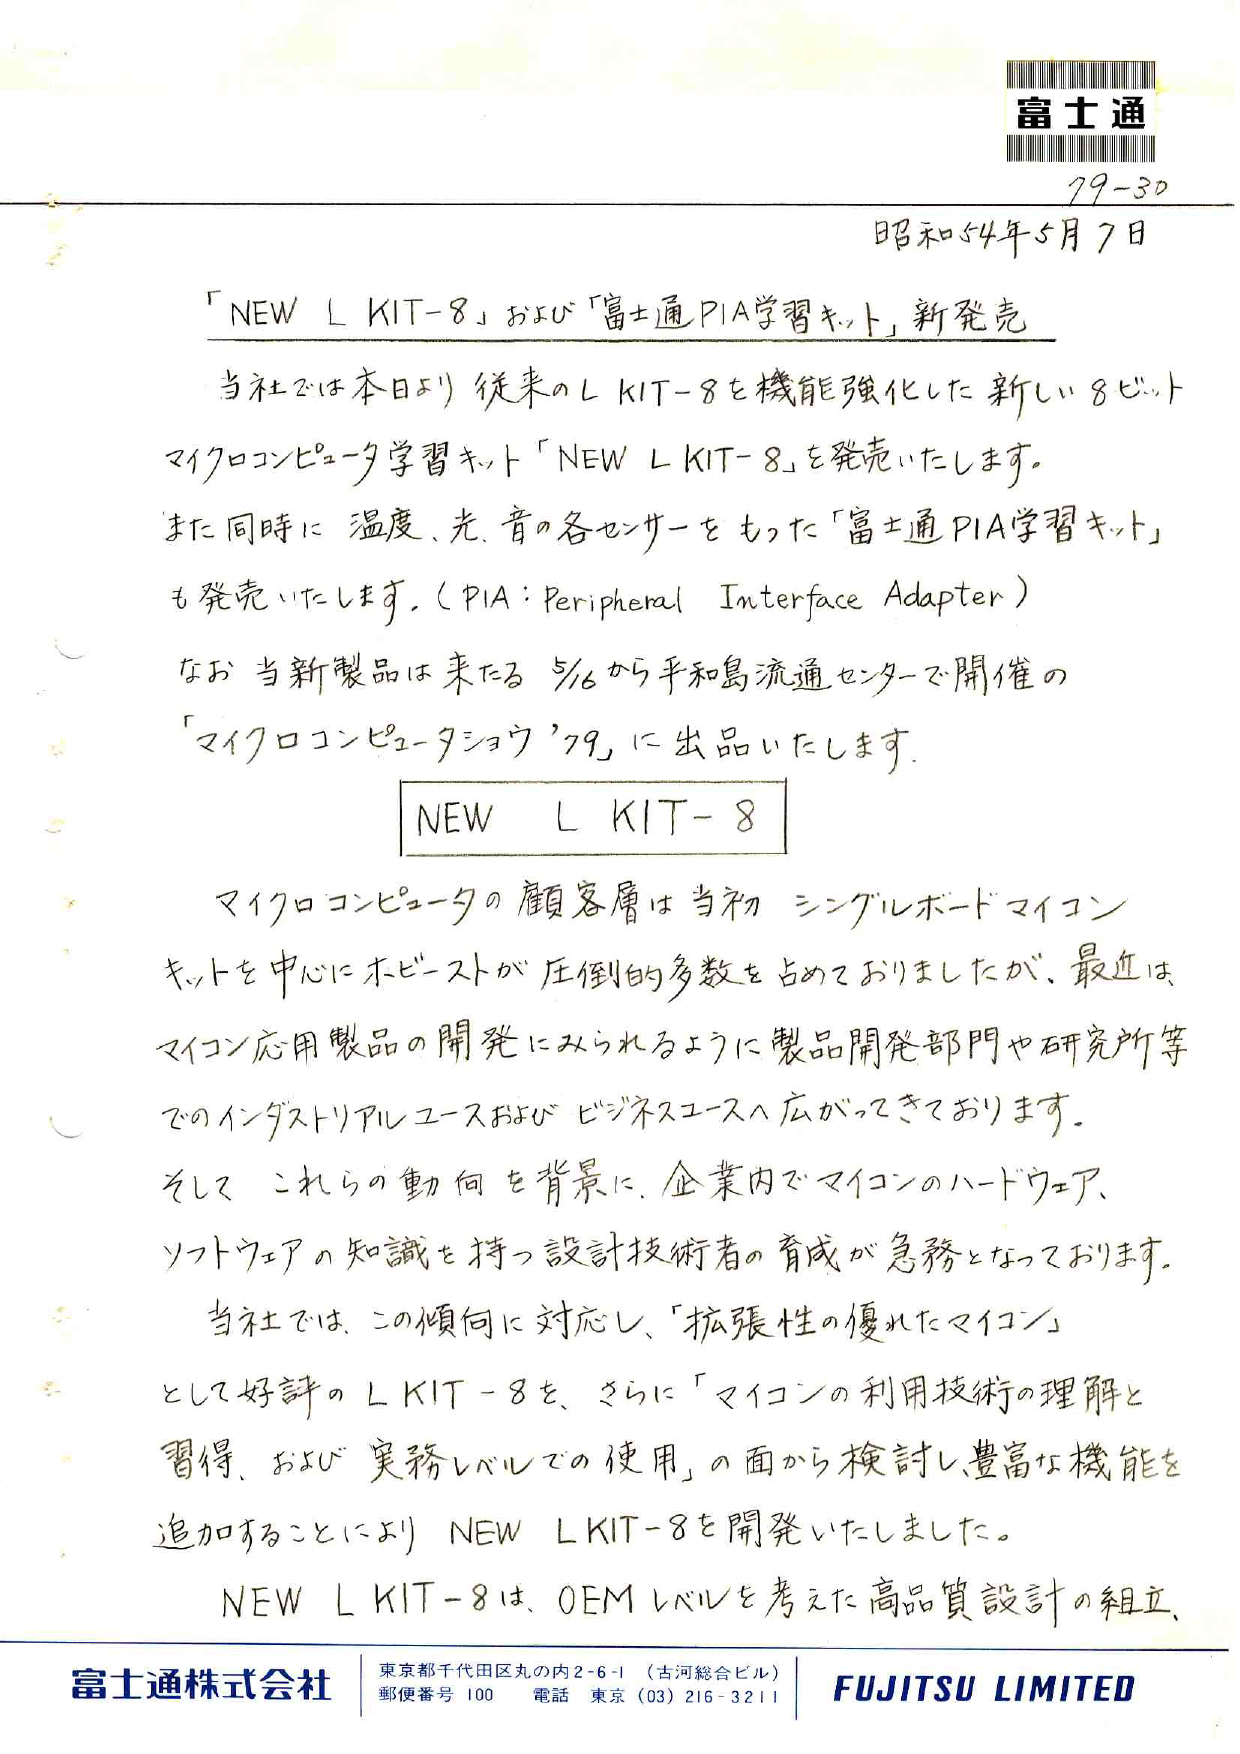 富士通
79-30
昭和54年5月7日
「NEW L KIT-8」および「富士通PIA学習キット」新発売
当社では本日より従来のL KIT-8を機能強化した新しい8ビット
マイクロコンピュータ学習キット「NEW L KIT-8」を発売いたします。
また同時に 温度、光、音の各センサーをもった「富士通PIA学習キット」
も発売いたします。(PIA:Peripheral Interface Adapter)
なお 当新製品は来たる 5/16から平和島流通センターで開催の
「マイクロコンピュータショウ'79」に出品いたします。
NEW L KIT-8
マイクロコンピュータの顧客層は当初 シングルボードマイコン
キットを中心にホビーストが圧倒的多数を占めておりましたが、最近は、
マイコン応用製品の開発にみられるように製品開発部門や研究所等
でのインダストリアルユースおよび ビジネスユースへ広がってきております。
そして これらの動向を背景に、企業内でマイコンのハードウェア、
ソフトウェアの知識を持つ設計技術者の育成が急務となっております。
当社では、この傾向に対応し、「拡張性の優れたマイコン」
として好評のL KIT-8を、さらに「マイコンの利用技術の理解と
習得、および実務レベルでの使用」の面から検討し、豊富な機能を
追加することにより NEW L KIT-8を開発いたしました。
NEW L KIT-8は、OEMレベルを考えた高品質設計の組立、
富士通株式会社
東京都千代田区丸の内2-6-1 (古河総合ビル)
郵便番号 100 電話 東京 (03) 216-3211
FUJITSU LIMITED